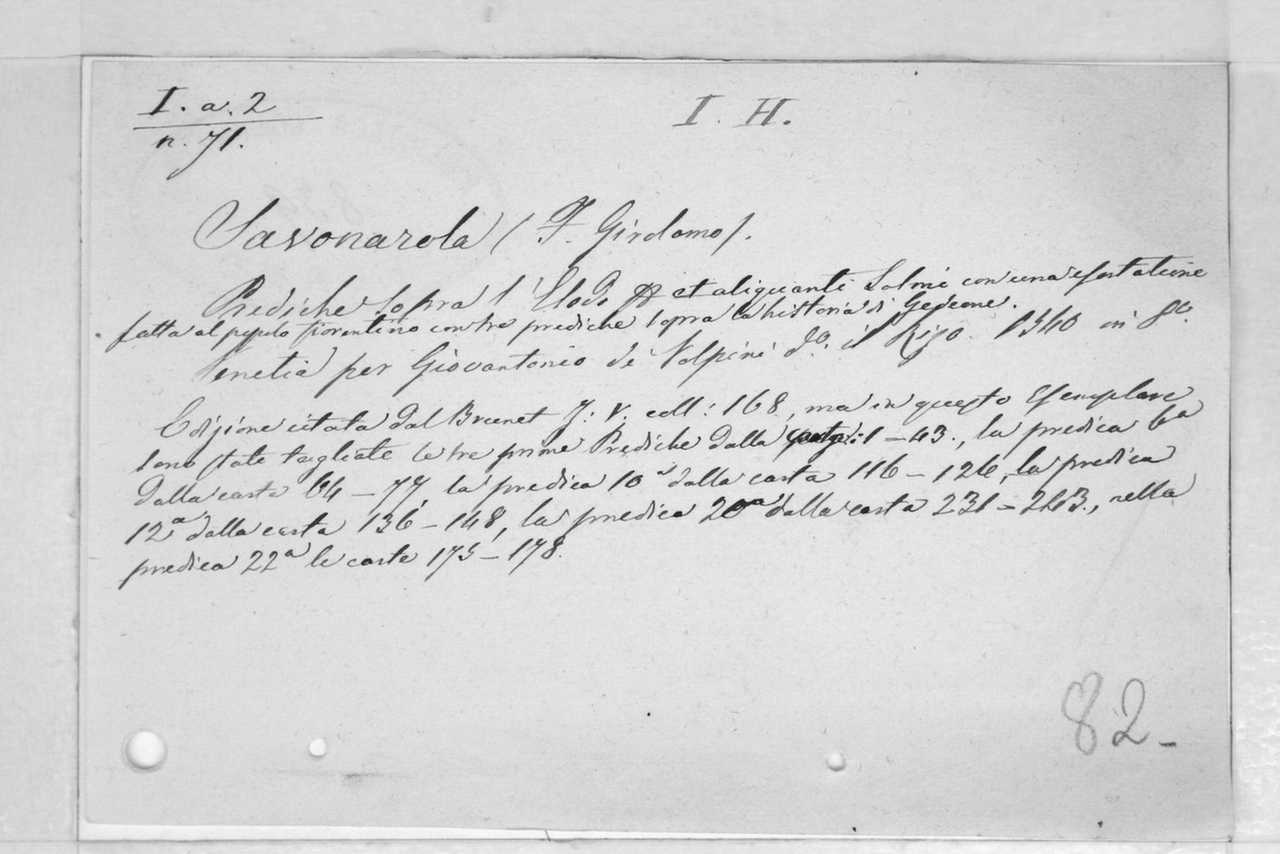 I. a. 2
n. 71.
I. H.
Savonarola (F. Girolamo).
Prediche sopra l'Esodo et aliquanti Salmi con una esortatione
fatta al popolo fiorentino con tre prediche sopra la historia di Gedeone.
Venetia per Giovantonio de Volpini do. il Rizo. 1540 in 8o.
Edizione citata dal Brunet T. V. coll: 168, ma in questo esemplare
sono state tagliate le tre prime Prediche dalla 1-43., la predica 6a
dalla carta 64-77, la predica 10a dalla carta 116-126, la predica
12a dalla carta 136-148, la predica 20a dalla carta 231-243., nella
predica 22a le carte 175-178.
82-